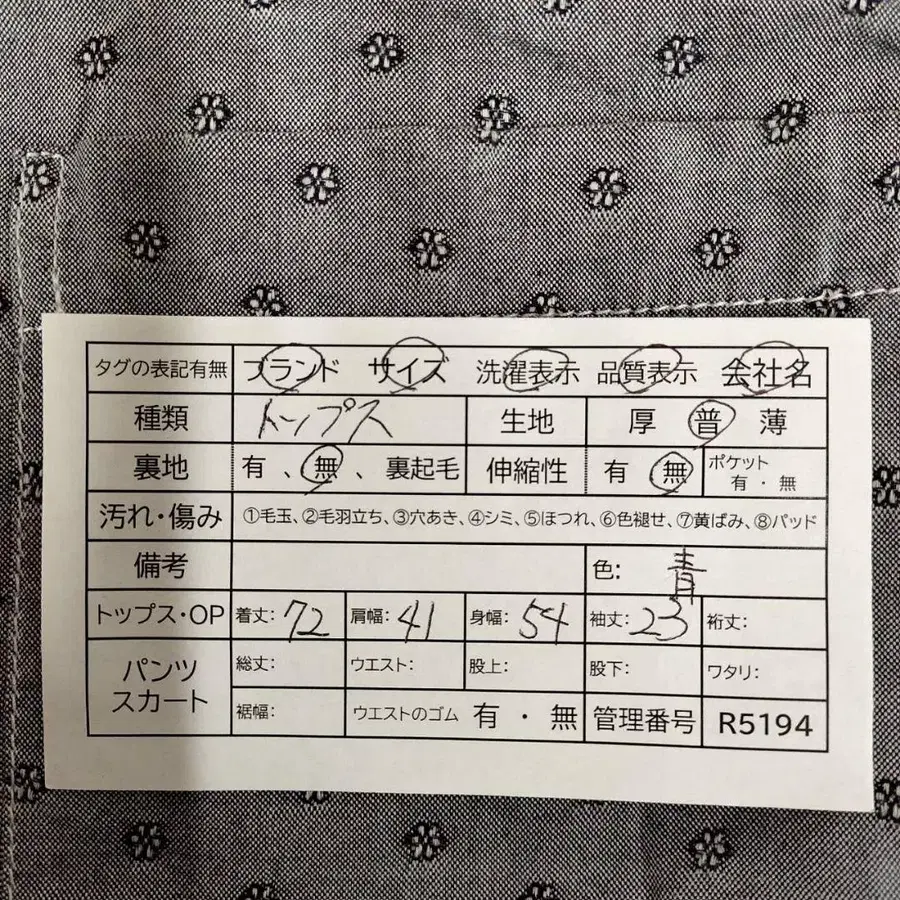 タグの表記有無 ブランド サイズ 洗濯表示 品質表示 会社名
種類 トップス 生地 厚 普 薄
裏地 有、無、裏起毛 伸縮性 有 無 ポケット 有・無
汚れ・傷み ①毛玉、②毛羽立ち、③穴あき、④シミ、⑤ほつれ、⑥色褪せ、⑦黄ばみ、⑧パッド
備考 色: 青
トップス・OP 着丈: 72 肩幅: 41 身幅: 54 袖丈: 23 裄丈:
パンツ スカート 総丈: ウエスト: 股上: 股下: ワタリ:
裾幅: ウエストのゴム 有・無 管理番号 R5194